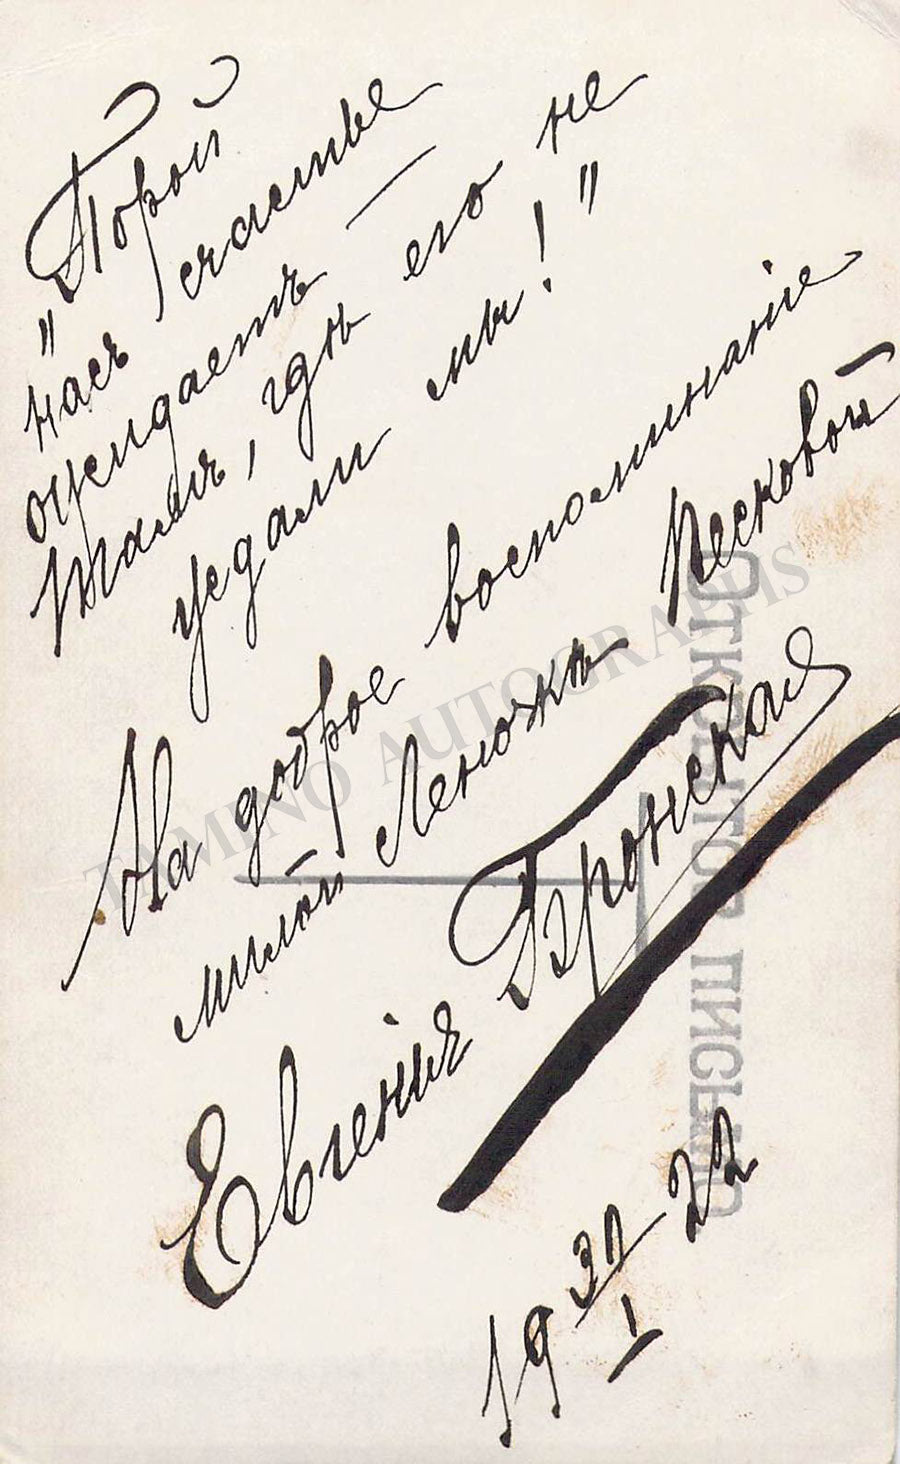 „Порой
насъ счастье
ожидаетъ —
тамъ, гдѣ его не
ждали мы!"
На доброе воспоминаніе
милой Леночкѣ Песковой
Евгенія Бронская
19 31/1 22
ОТКРЫТОЕ ПИСЬМО
TAMINO AUTOGRAPHS